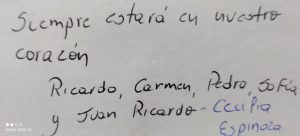 Siempre estará en nuestro
corazón
Ricardo, Carmen, Pedro, Sofía
y Juan Ricardo - Cecilia
Espinola